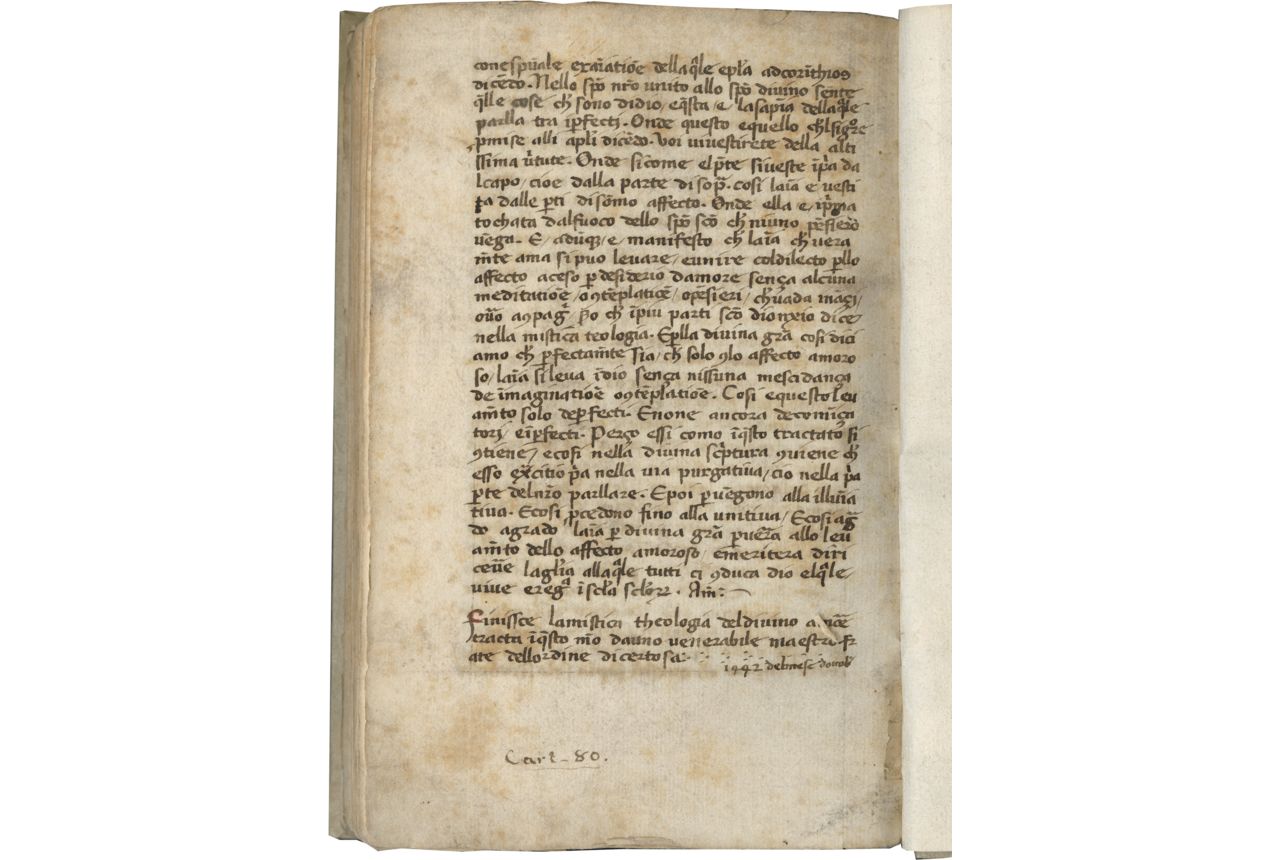 cone spūale exaīatiōe della q̄le ep̄la ad corīnthios
dicēdo. Nello sp̄o nr̄o unito allo sp̄o divino sente
q̄lle cose ch̄ sono didio, eq̄sta, e, la sap̄ia della q̄le
parlla tra ip̄fecti. Onde questo equello ch̄l sigre
pmise alli apl̄i dicēdo. Voi vi vestirete della alti
ssima v̄tute. Onde sicome el p̄te si veste ip̄a da
lcapo, cioe dalla parte di sop̄. cosi laīa e vesti
ta dalle p̄ti di sōmo affecto. Onde ella e, ip̄ma
tochata dal fuoco dello sp̄o sc̄o ch̄ niuno pēsiero
vēga. E, adūq̄, e, manifesto ch̄ laīa ch̄ vera
m̄te ama si puo levare, e unire col dilecto p̄llo
affecto aceso p̄ desiderio damore sença alcūna
meditatiōe, o ꝯtēplatiōe, o pēsieri, ch̄ vada ināçi,
o vīo aꝯpaḡ. p̄o ch̄ īpiu parti sc̄o dionixio dice
nella mistica teologia. E p̄lla divina gr̄a cosi dici
amo ch̄ p̄fectam̄te sia, ch̄ solo ꝯlo affecto amoro
so, laīa si leva īdio sença nissuna mescidança
de imaginatiōe o ꝯtēplatiōe. Cosi e questo lev
am̄to solo de p̄fecti. E none ancora de comīça
tori, e īp̄fecti. Perço essi come īq̄sto tractato si
ꝯtiene, e cosi nella divina sc̄ptura ꝯviene ch̄
esso ex̄citio p̄a nella via purgativa, cio nella p̄a
p̄te del nr̄o parllare. E poi p̄vēgono alla illuīa
tiva. E cosi p̄cedono fino alla unitiva, E cosi aḡ
do agrado laīa p̄ divina gr̄a p̄vēra allo lev
am̄to dello affecto amoroso, e meritera di ri
cevē la gl̄ia alla q̄le tutti ci ꝯduca dio el q̄le,
vive e reḡ ī sc̄la sc̄lorz. Am̄:
Finissce la mistica theologia del divino amōe
tracta īq̄sto mō da uno venerabile maestro. fr
ate dell ordine di certosa.
1442 del mese dotob
Cart - 80.